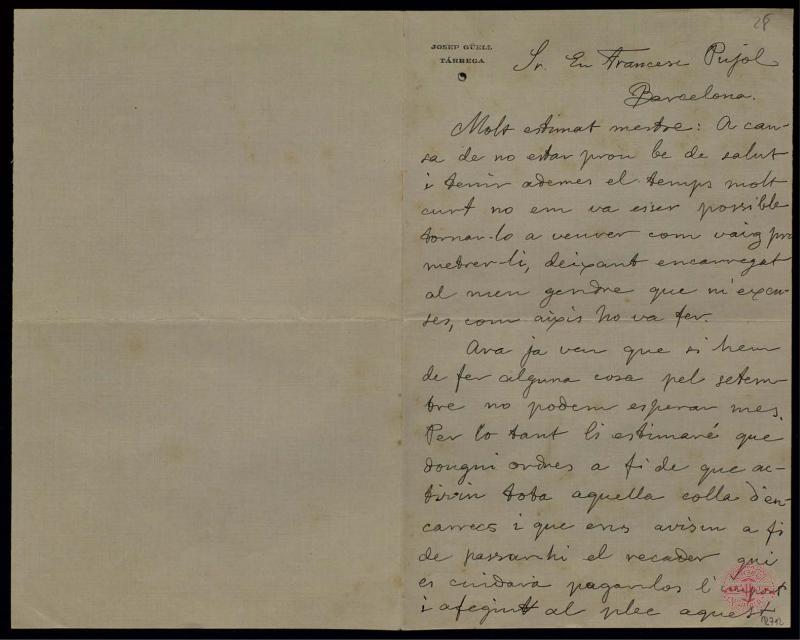 28
JOSEP GÜELL
TÀRREGA
Sr. En Francesc Pujol
Barcelona.
Molt estimat mestre: A cau-
sa de no estar prou be de salut
i tenir ademes el temps molt
curt no em va esser possible
tornar-lo a veurer com vaig pro
metrer-li, deixant encarregat
al meu gendre que m'excu-
sés, com aixis ho va fer.
Ara ja veu que si hem
de fer alguna cosa pel setem-
bre no podem esperar mes.
Per lo tant li estimaré que
dongui ordres a fi de que ac-
tivin tota aquella colla d'en-
carrecs i que ens avisin a fi
de passarhi el recader qui
es cuidará pagarlos l'import
i afegint al plec aquest